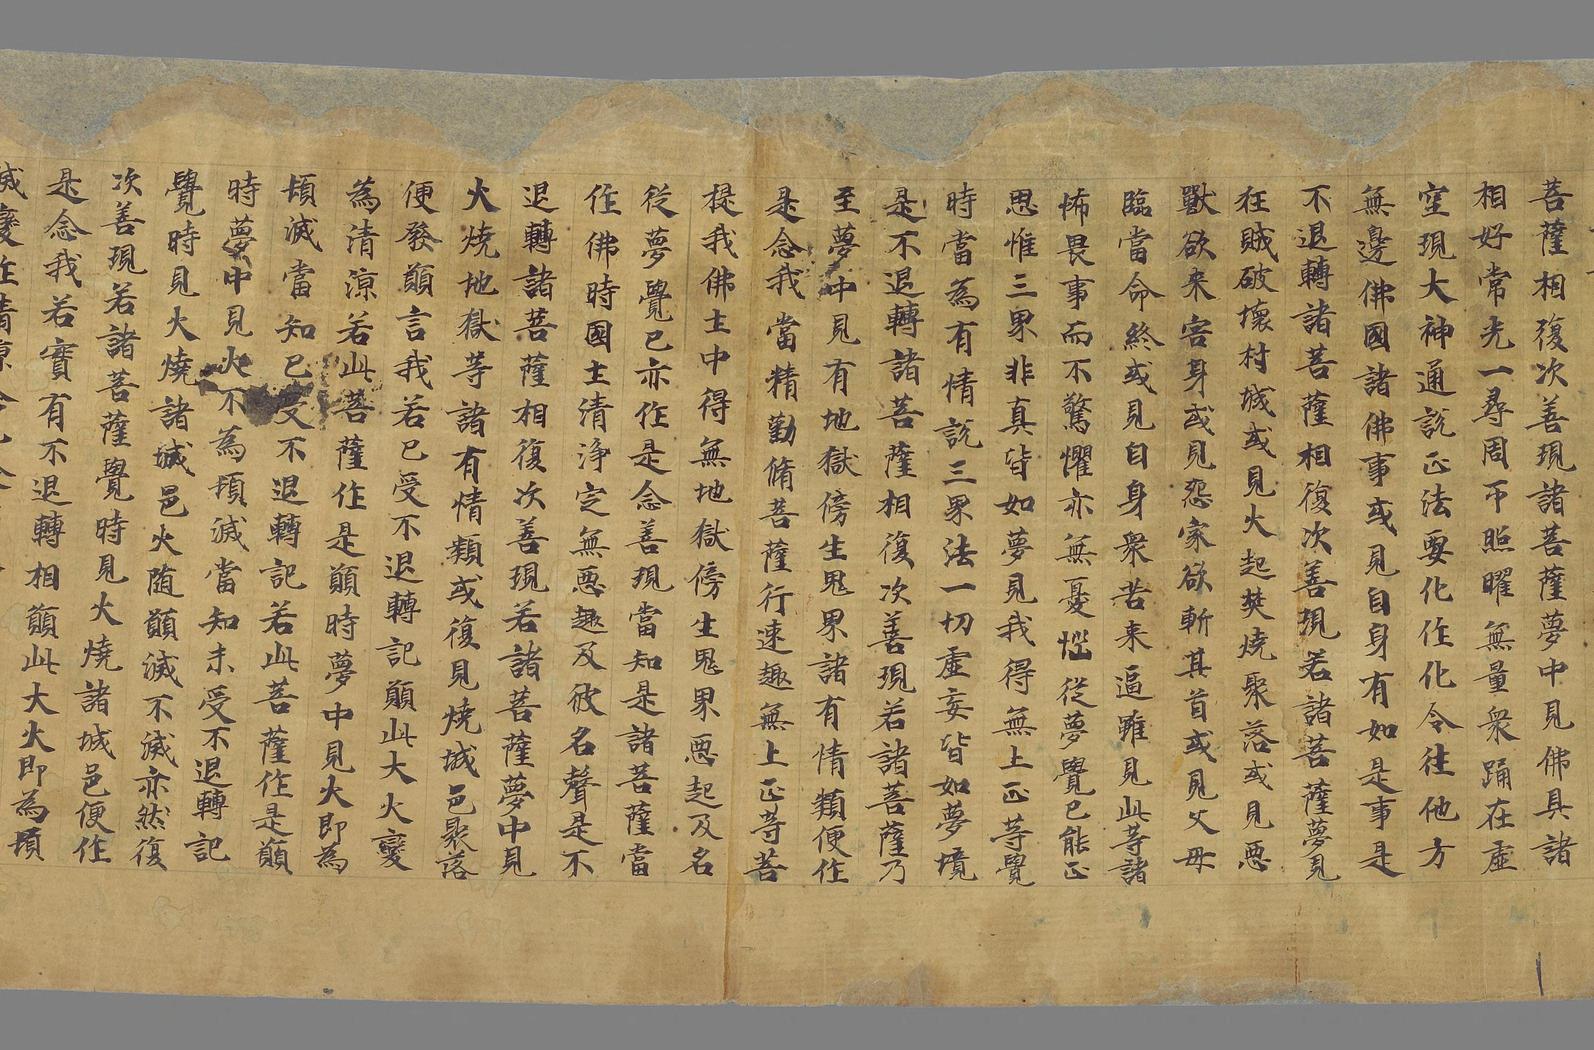 菩薩相復次善現諸菩薩夢中見佛具諸
相好常光一尋周帀照曜無量衆踊在虛
空現大神通說正法要化作化令往他方
無邊佛國諸佛事或見自身有如是事是
不退轉諸菩薩相復次善現若諸菩薩夢見
狂賊破壞村城或見火起焚燒聚落或見惡
獸欲来害身或見怨家欲斬其首或見父母
臨當命終或見自身衆苦来逼雖見此等諸
怖畏事而不驚懼亦無憂惱從夢覺已能正
思惟三界非真皆如夢見我得無上正等覺
時當為有情說三界法一切虛妄皆如夢境
是不退轉諸菩薩相復次善現若諸菩薩乃
至夢中見有地獄傍生鬼界諸有情類便作
是念我當精勤脩菩薩行速趣無上正等菩
提我佛土中得無地獄傍生鬼界惡起及名
從夢覺已亦作是念善現當知是諸菩薩當
作佛時國土清淨定無惡趣及彼名聲是不
退轉諸菩薩相復次善現若諸菩薩夢中見
火燒地獄等諸有情類或復見燒城邑聚落
便發願言我若已受不退轉記願此大火變
為清涼若此菩薩作是願時夢中見火即為
頓滅當知已受不退轉記若此菩薩作是願
時夢中見火不為頓滅當知未受不退轉記
覺時見大燒諸城邑火随願滅不滅亦然復
次善現若諸菩薩覺時見火燒諸城邑便作
是念我若實有不退轉相願此大火即為頓
滅變作清涼